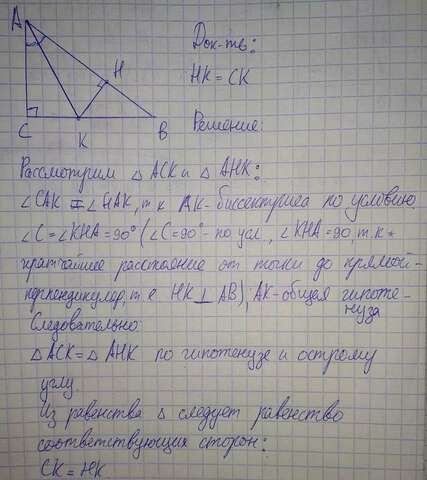 A
Док-ть:
H
HK = CK
C
K
B
Решение:
Рассмотрим △ ACK и △ AHK:
∠CAK = ∠HAK, т.к AK-биссектриса по условию.
∠C = ∠KHA = 90° (∠C = 90° - по усл., ∠KHA = 90, т.к
кратчайшее расстояние от точки до прямой-
перпендикуляр, т е HK ⊥ AB), AK-общая гипоте-
нуза
Следовательно:
△ ACK = △ AHK по гипотенузе и острому
углу.
Из равенства △ следует равенство
соответствующих сторон:
CK = HK